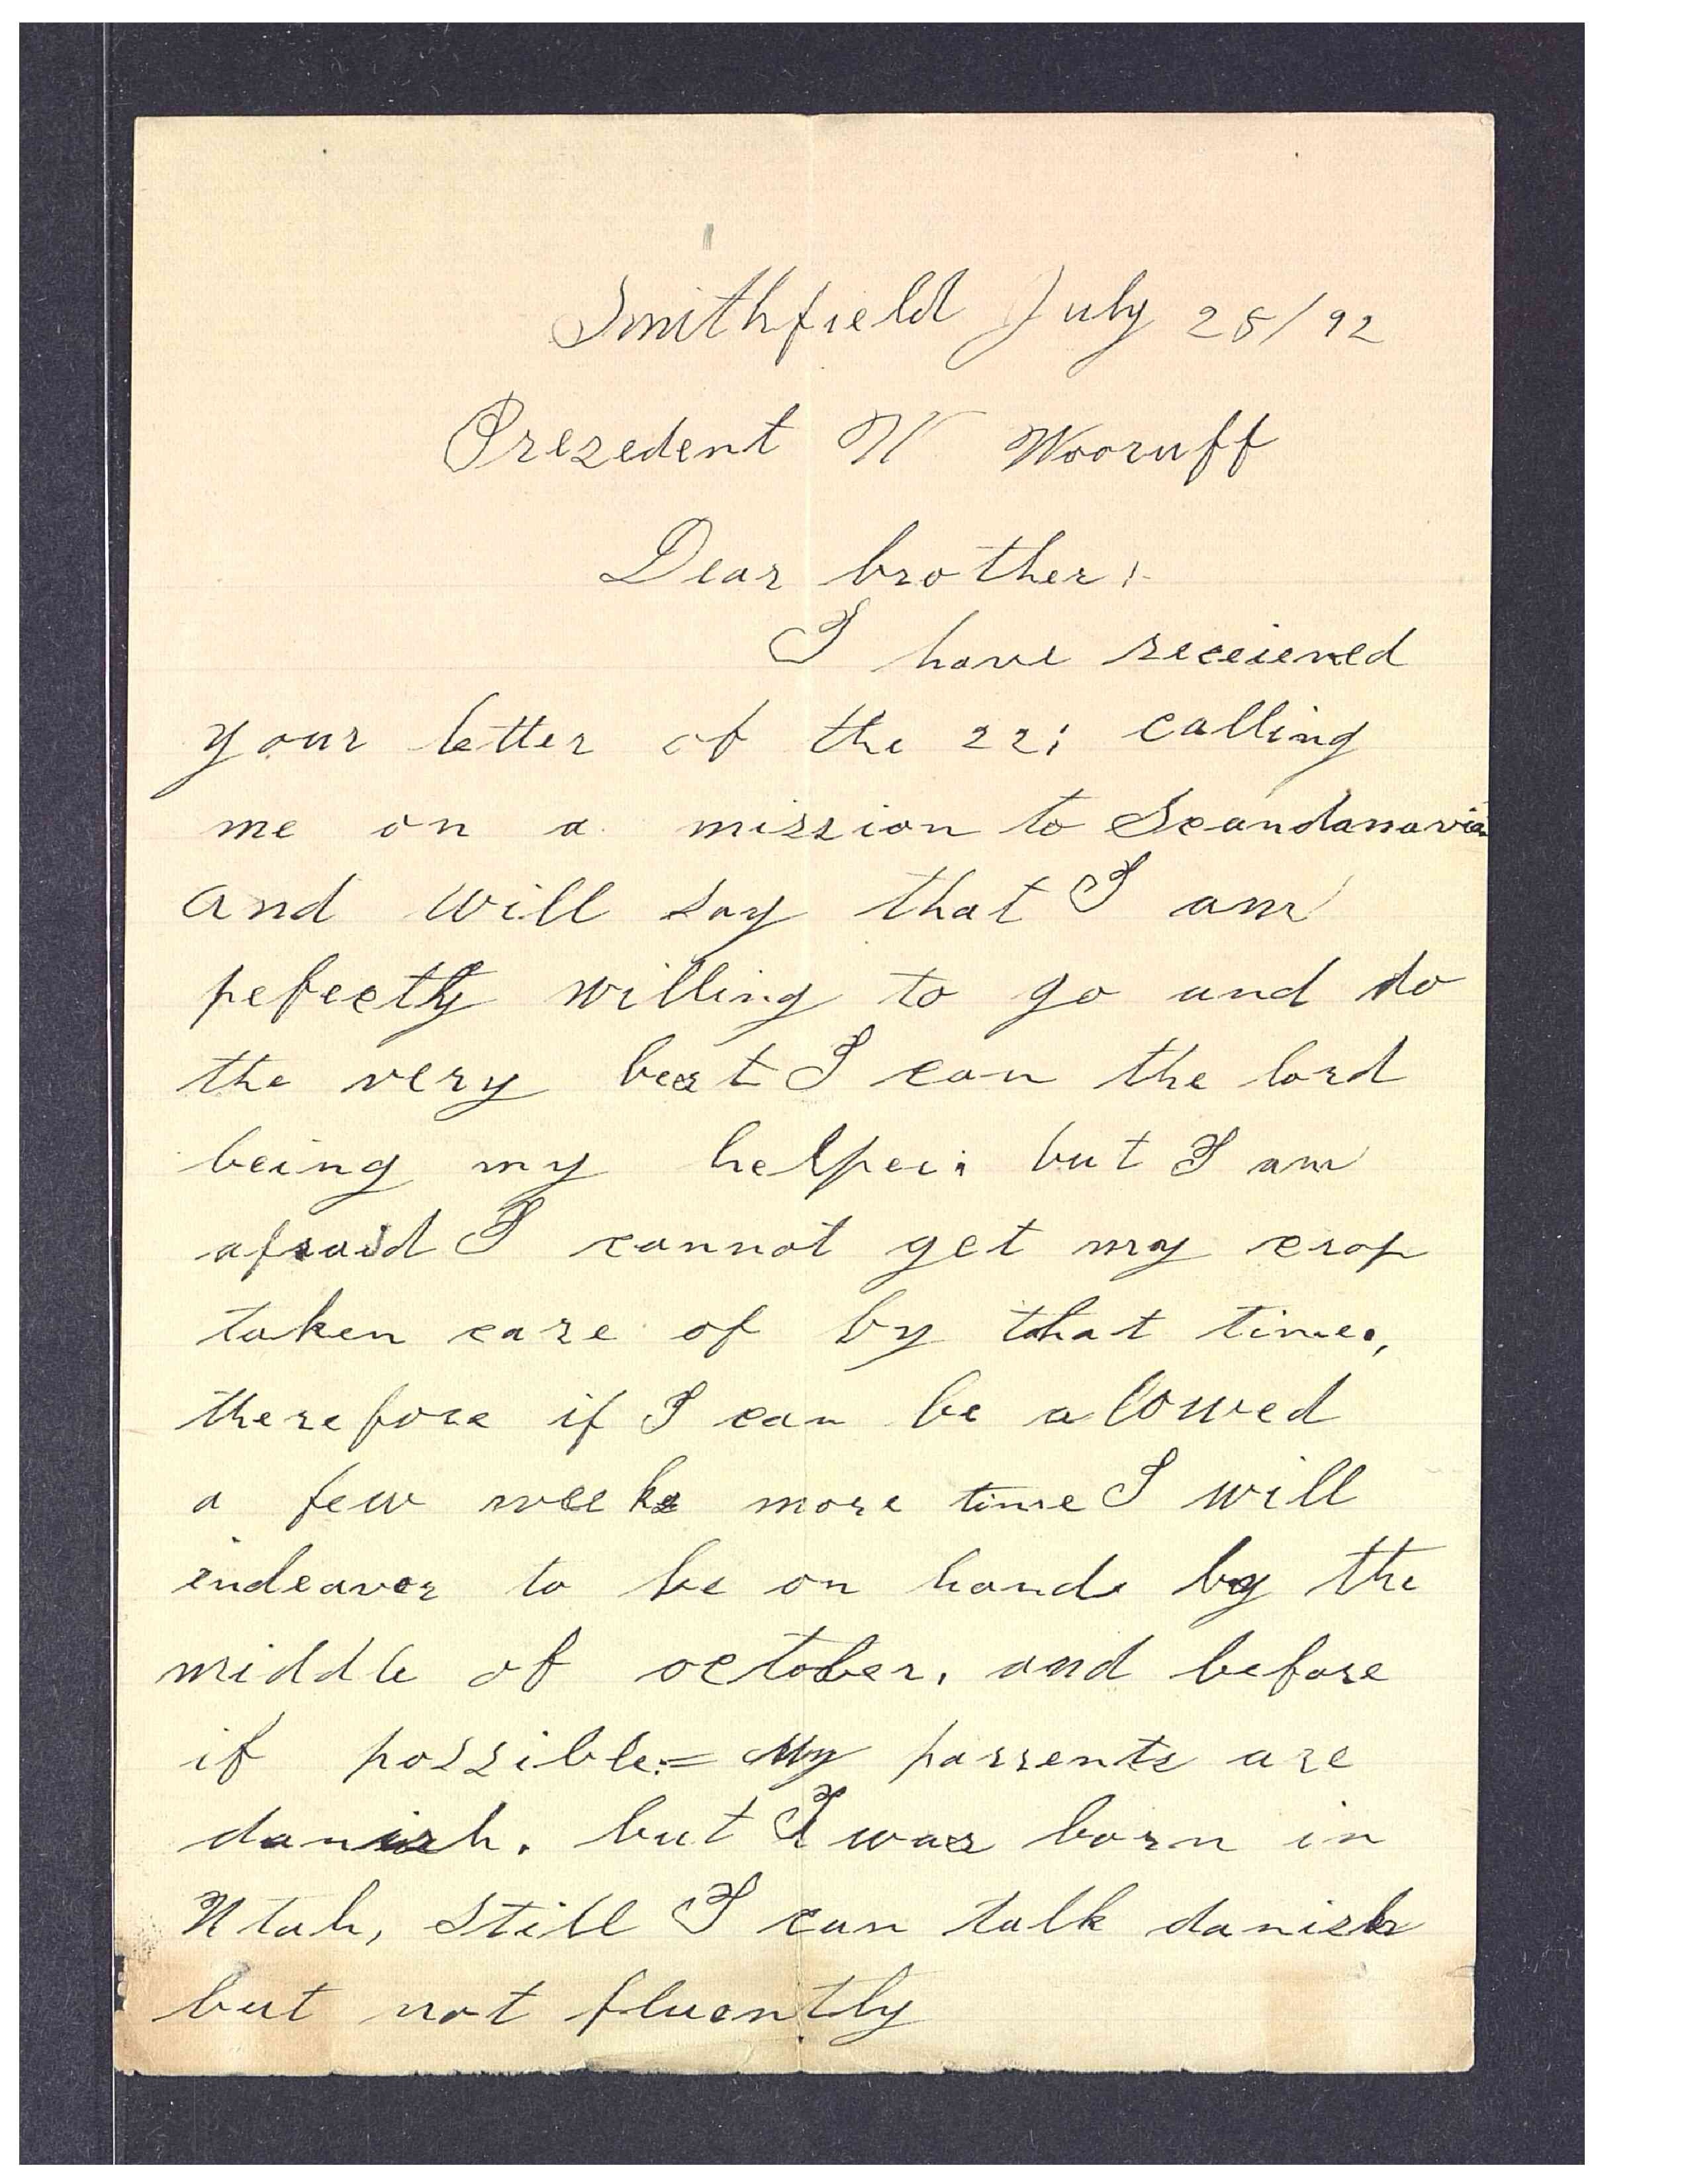 Smithfield July 28/92
Prezedent W Wooruff
Dear brother:
I have receieved
your letter of the 22: calling
me on a mission to Scandanavia
and will say that I am
pefectly willing to go and do
the very best I can the lord
being my helper: but I am
afraid I cannot get my crop
taken care of by that time.,
therefore if I can be alowed
a few weeks more time I will
endeavor to be on hand by the
middle of october. and before
if possible:= My parrents are
danish. but I was born in
Utah, still I can talk danish
but not fluently